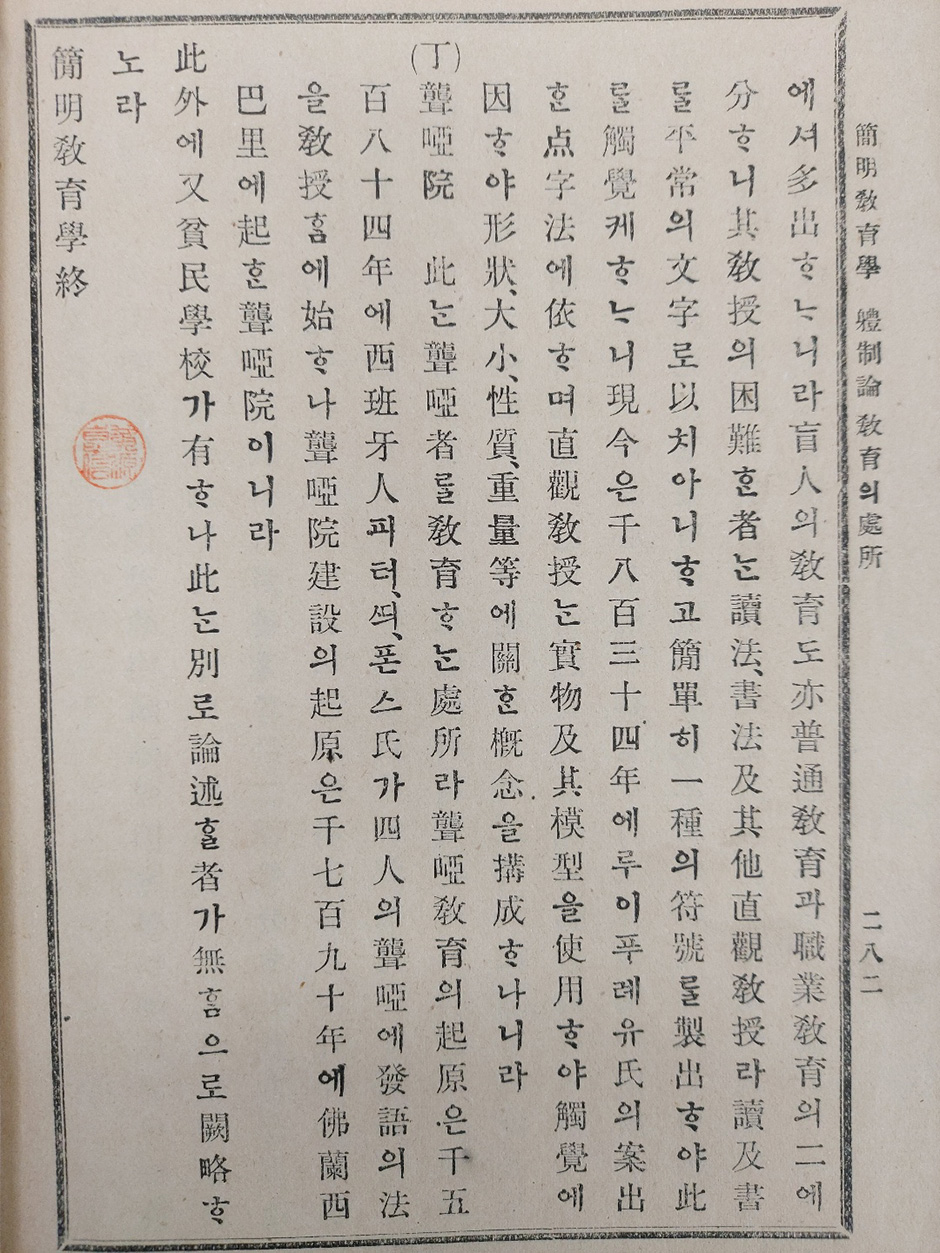 簡明教育學 軆制論 教育의處所 二八二
에셔多出ᄒᆞᄂᆞ니라盲人의教育도亦普通教育과職業教育의二에
分ᄒᆞ니其教授의困難ᄒᆞᆫ者ᄂᆞᆫ讀法、書法及其他直觀教授라讀及書
ᄅᆞᆯ平常의文字로以치아니ᄒᆞ고簡單히一種의符號ᄅᆞᆯ製出ᄒᆞ야此
ᄅᆞᆯ觸覺케ᄒᆞᄂᆞ니現今은千八百三十四年에루이푸레유氏의案出
ᄒᆞᆫ点字法에依ᄒᆞ며直觀教授ᄂᆞᆫ實物及其模型을使用ᄒᆞ야觸覺에
因ᄒᆞ야形狀、大小、性質、重量等에關ᄒᆞᆫ概念을搆成ᄒᆞ나니라
(丁)聾啞院 此ᄂᆞᆫ聾啞者ᄅᆞᆯ教育ᄒᆞᄂᆞᆫ處所라聾啞教育의起原은千五
百八十四年에西班牙人피터、ᄯᅴ、폰스氏가四人의聾啞에發語의法
을教授ᄒᆞᆷ에始ᄒᆞ나聾啞院建設의起原은千七百九十年에佛蘭西
巴里에起ᄒᆞᆫ聾啞院이니라
此外에又貧民學校가有ᄒᆞ나此ᄂᆞᆫ別로論述ᄒᆞᆯ者가無ᄒᆞᆷ으로闕略ᄒᆞ
노라
簡明教育學終